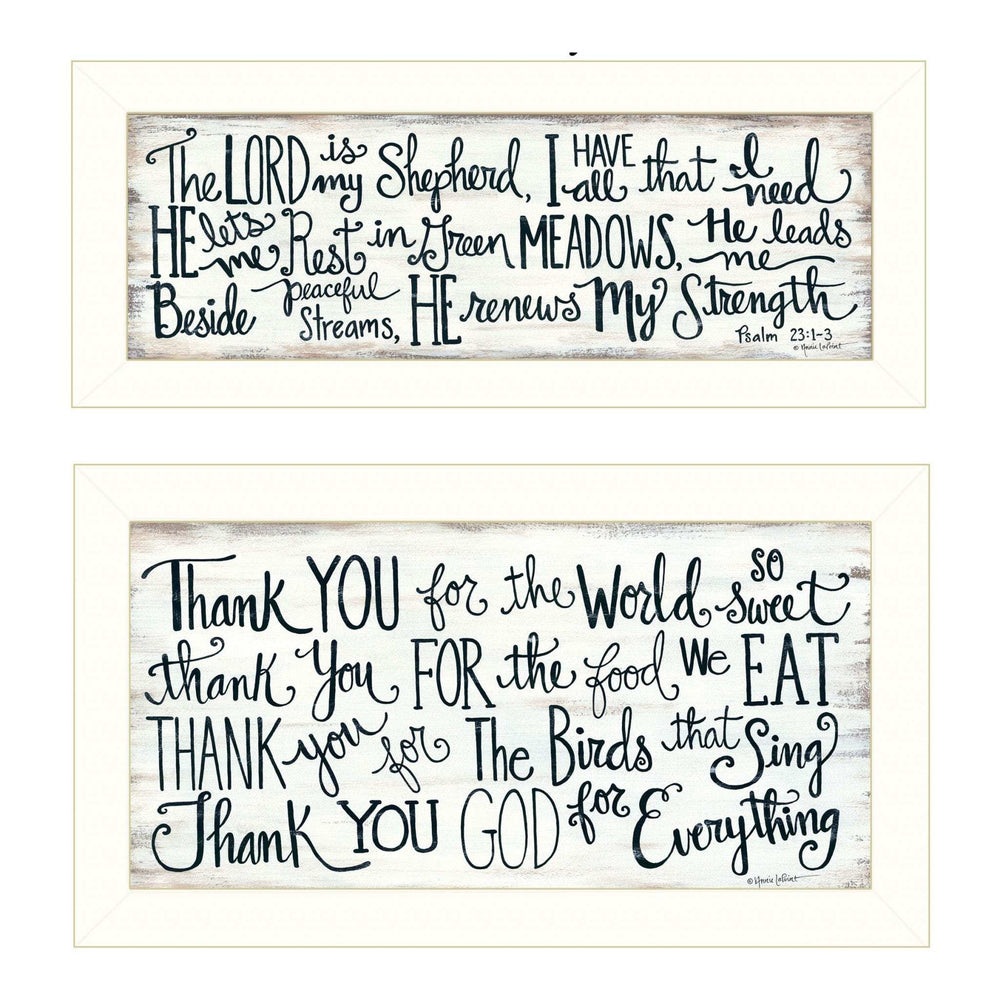 The LORD is my Shepherd, I HAVE all that I need
HE lets me Rest in Green MEADOWS, He leads me
Beside peaceful Streams, HE renews My Strength
Psalm 23:1-3
© Annie LaPoint
Thank YOU for the World so sweet
thank You FOR the food we EAT
THANK you for The Birds that Sing
Thank YOU GOD for Everything
© Annie LaPoint